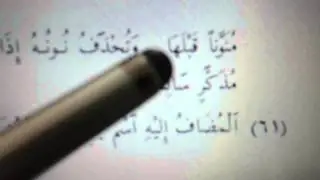 مُنَوَّناً قَبْلَهَا وَتُحْذَفُ نُونُهُ إِذَا
مُذَكَّرٍ
(٦١) اَلْمُضَافُ إِلَيْهِ اَسْمٌ